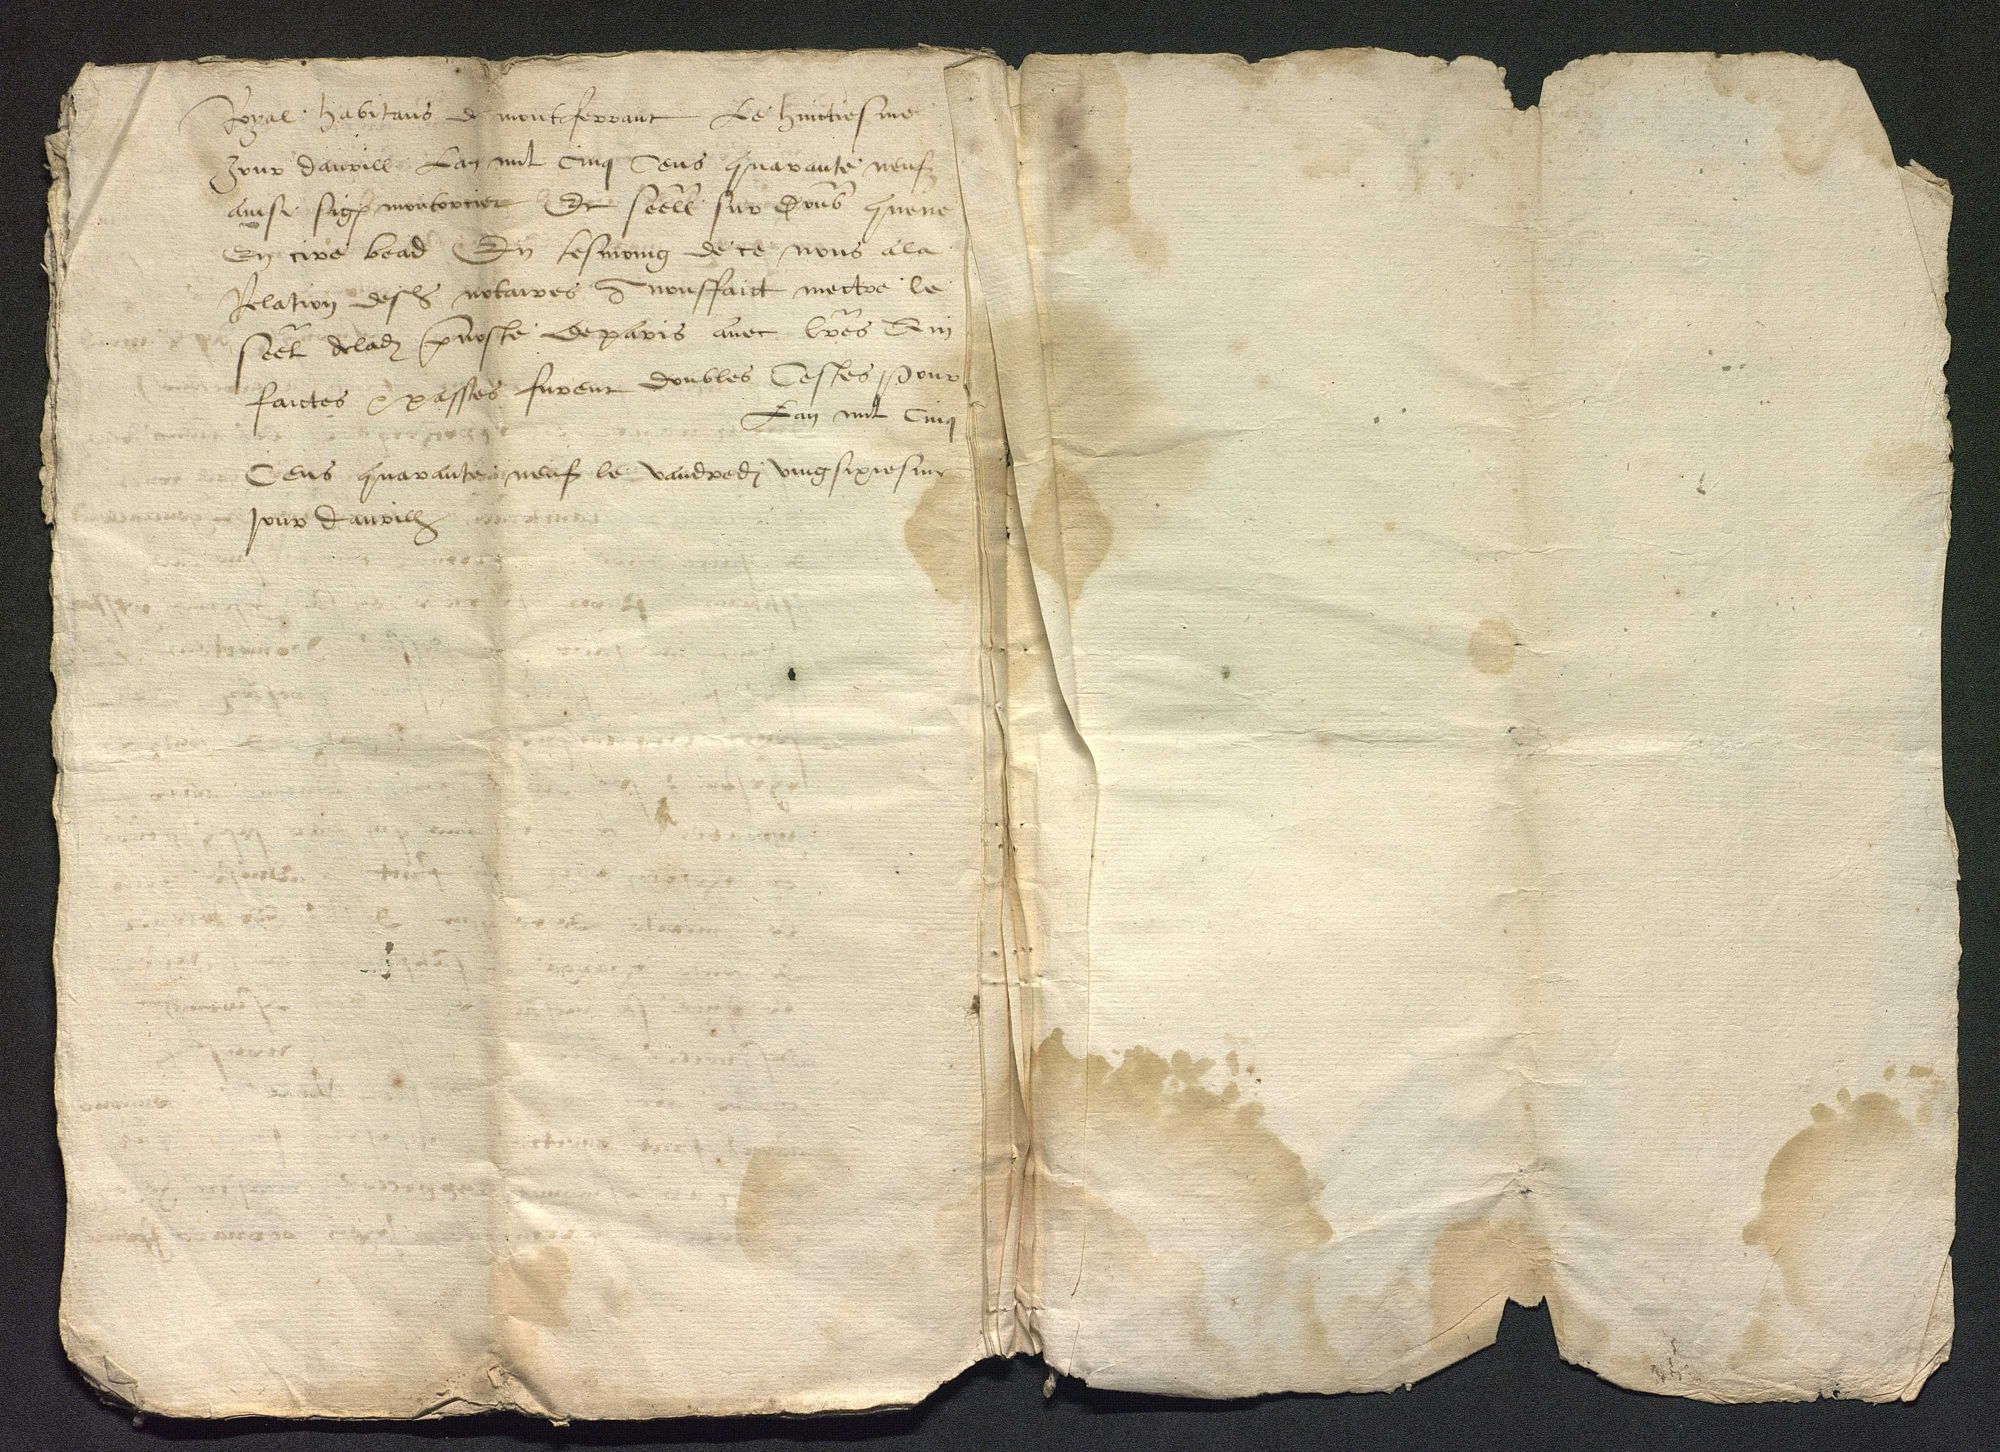 Royal habitans de montferrant Le huictiesme
Jour dauvrill Lan mil cinq Cens quarante neuf
ainsi sign montorcier Et seell sur doub queue
En cire vead En tesmoing de ce nous a la
Relation desd notaires nouffaict mectre le
seel delad pvoste de paris avec lres qui
faictes passees furent doubles Cestes pour
Lan mil cinq
Cens quarante neuf le vandredj vingsixiesme
Jour dauvrill